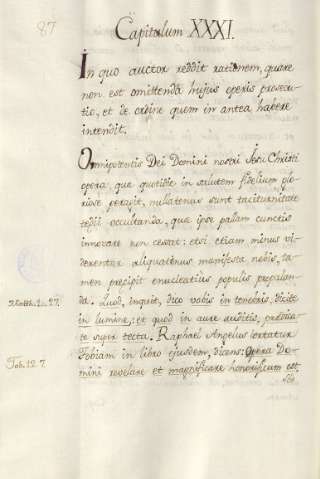 87
Capitulum XXXI.
In quo auctor reddit rationem, quare
non est omittenda hujus operis prosecu-
tio, et de ordine quem in antea habere
intendit.
Omnipotentis Dei Domini nostri Jesu Christi
opera, que quotidie in salutem fidelium glo-
riose peragit, nullatenus sunt taciturnitate
tepii occultanda, que ipse palam cunctis
innovare non cessat: etsi etiam minus vi-
derentur aliquatenus manifesta nobis, ta-
men precipit enucleatius populis propalan-
da. Quod, inquit, dico vobis in tenebris, dicite
in lumine,: et quod in aure auditis, predica-
te super tecta. Raphael Angelus ortatur
Tobiam in libro ejusdem, dicens: Opera Do-
mini revelare et magnificare honorificum est.
Matth. 10. 27.
Tob. 12. 7.